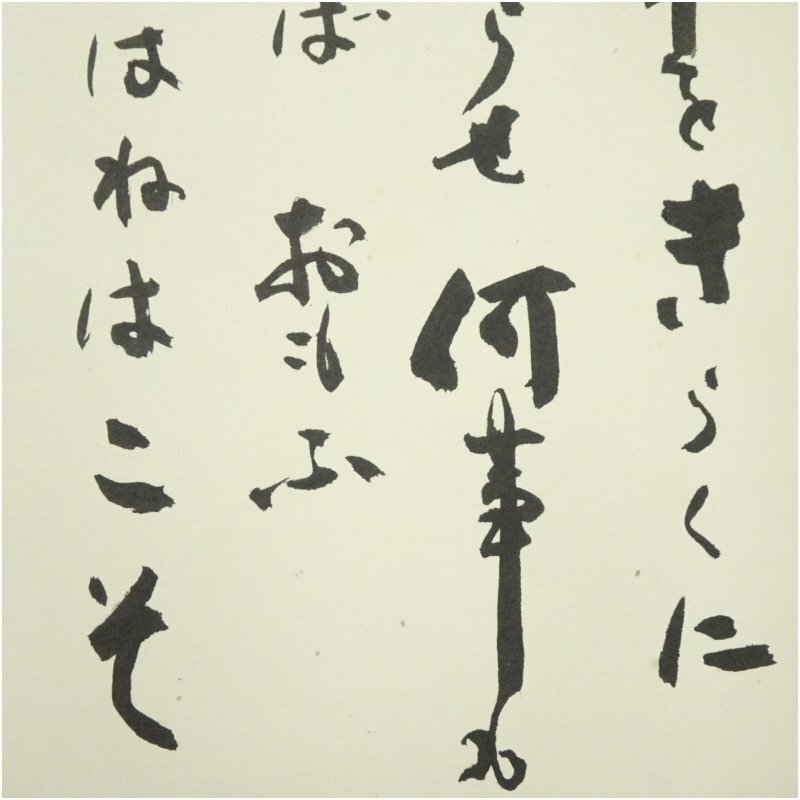 をきらくに
らせ何事も
ばおもふ
はねはこそ